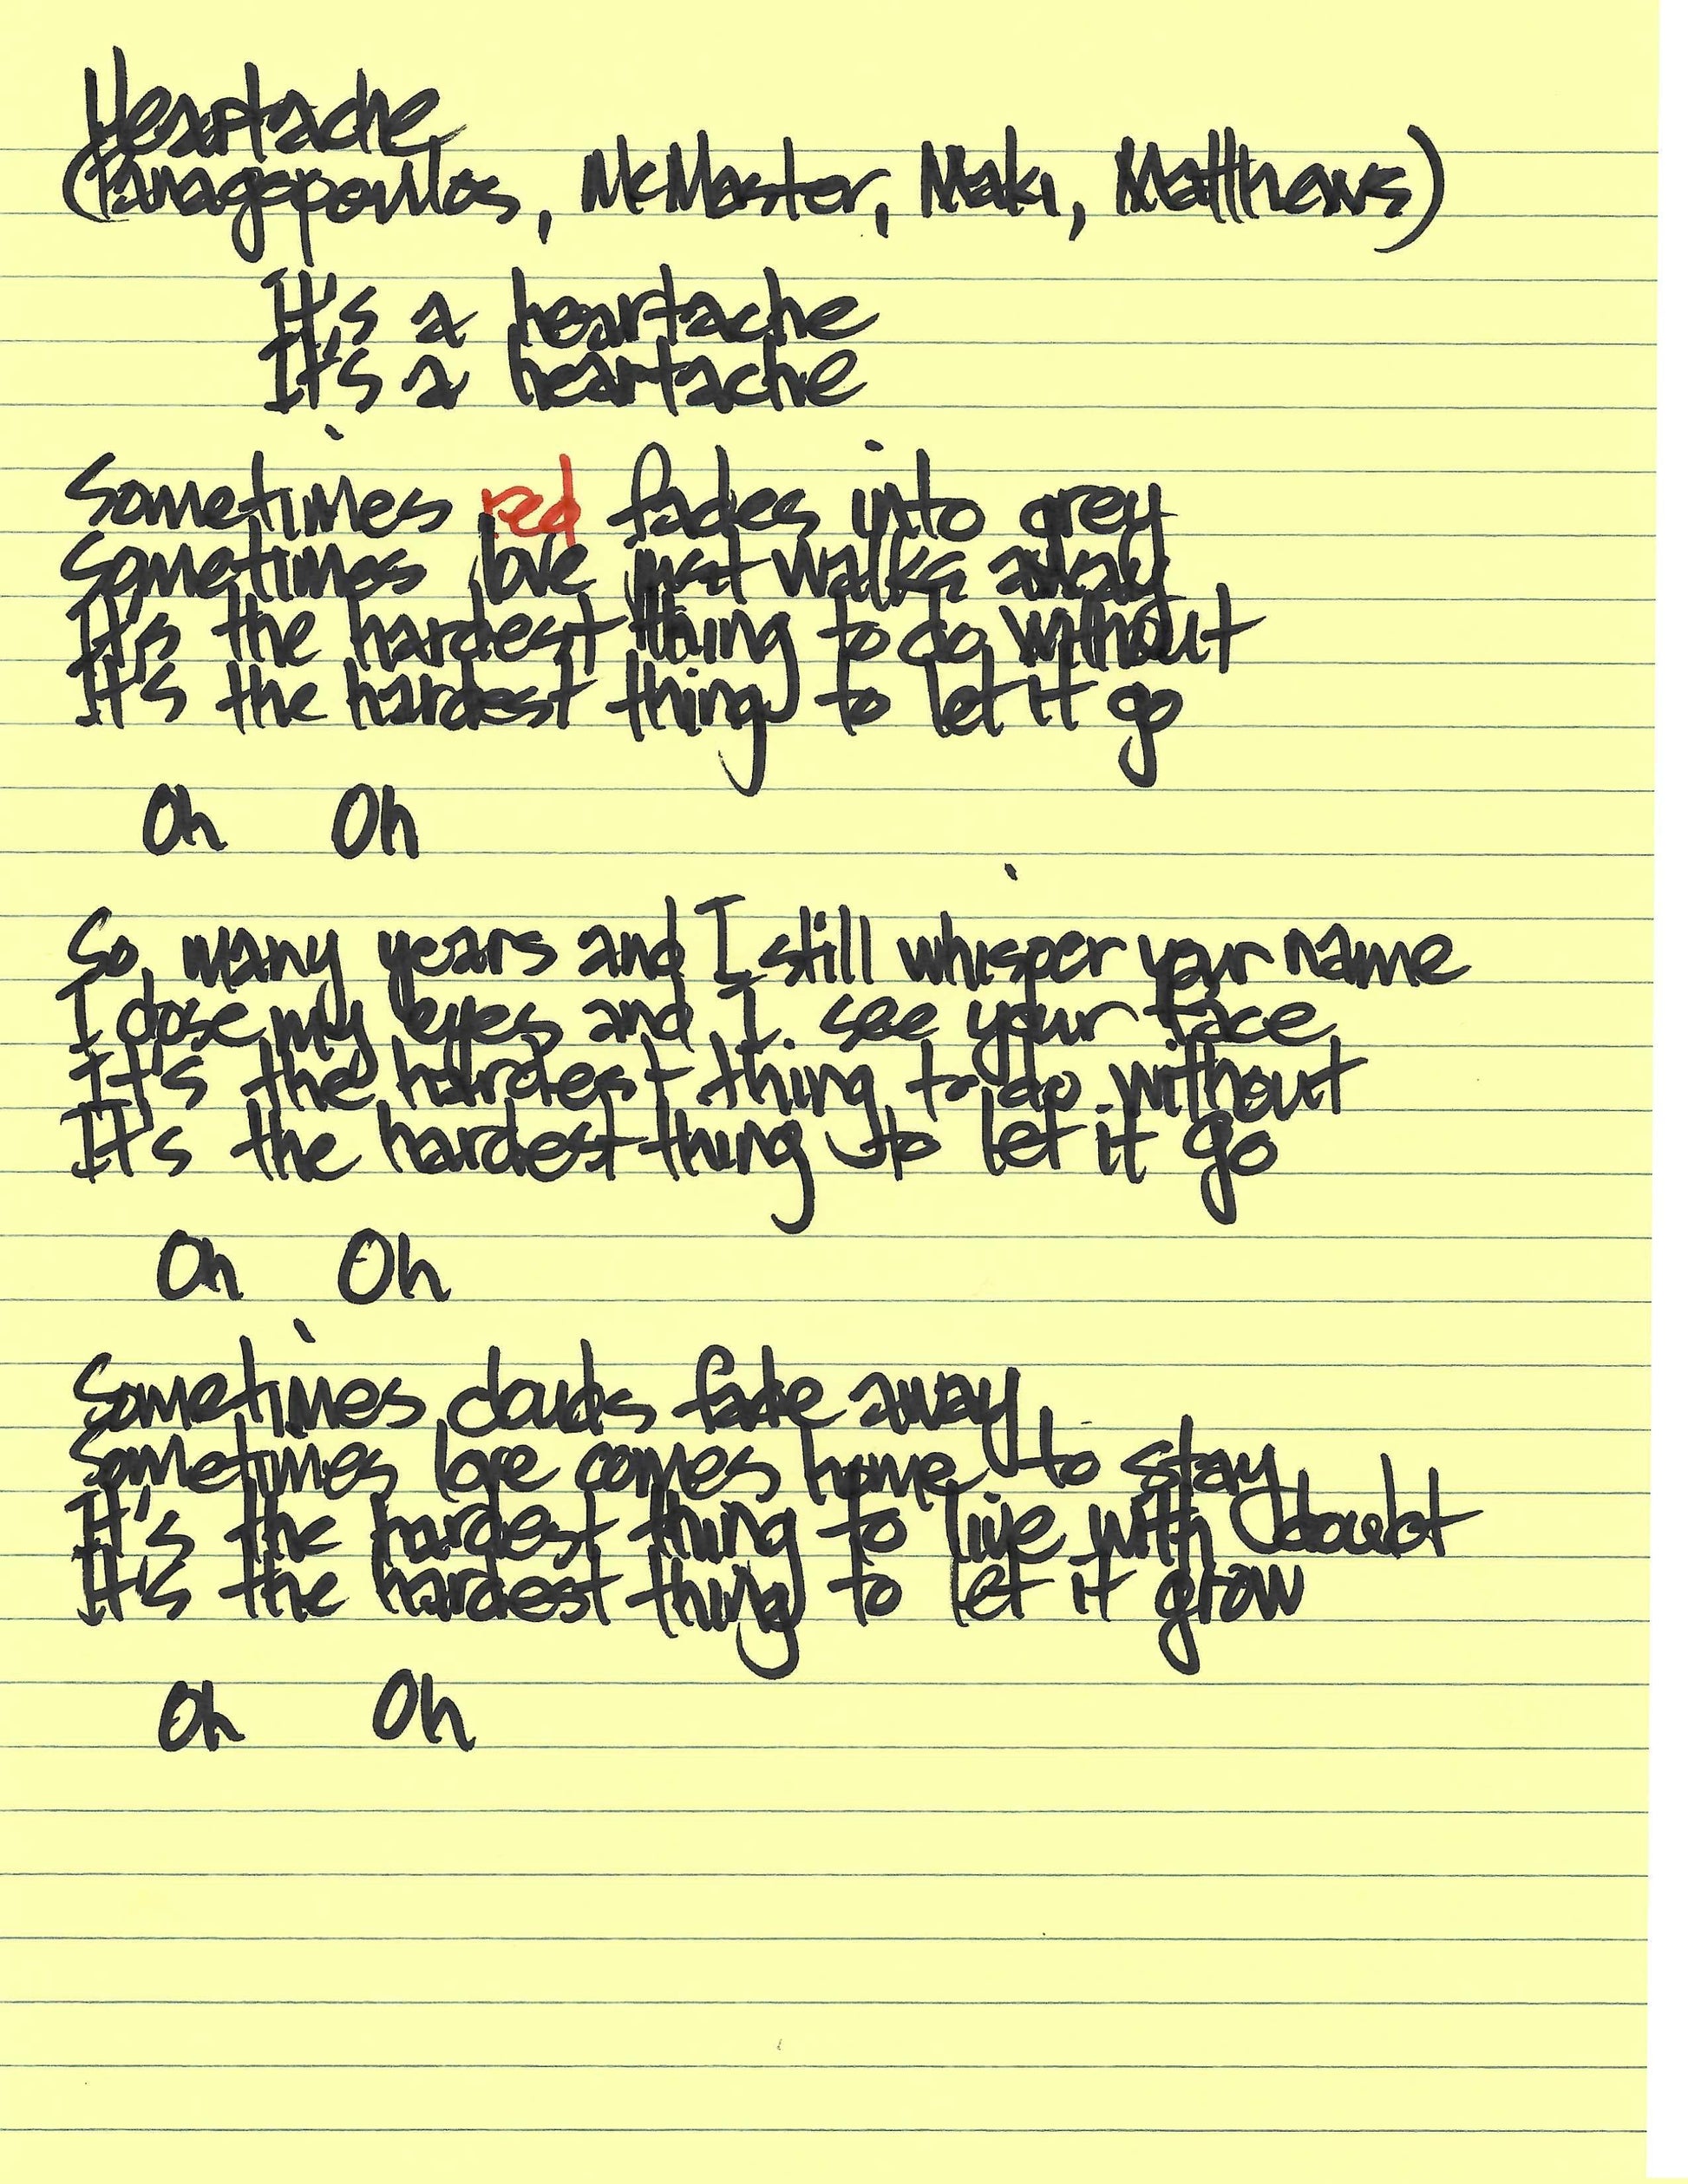 Heartache
(Panagopoulos, McMaster, Maki, Matthews)
It's a heartache
It's a heartache
Sometimes red fades into grey
Sometimes love just walks away
It's the hardest thing to do without
It's the hardest thing to let it go
Oh Oh
So many years and I still whisper your name
I close my eyes and I see your face
It's the hardest thing to do without
It's the hardest thing to let it go
Oh Oh
Sometimes clouds fade away
Sometimes love comes home to stay
It's the hardest thing to live with doubt
It's the hardest thing to let it grow
Oh Oh